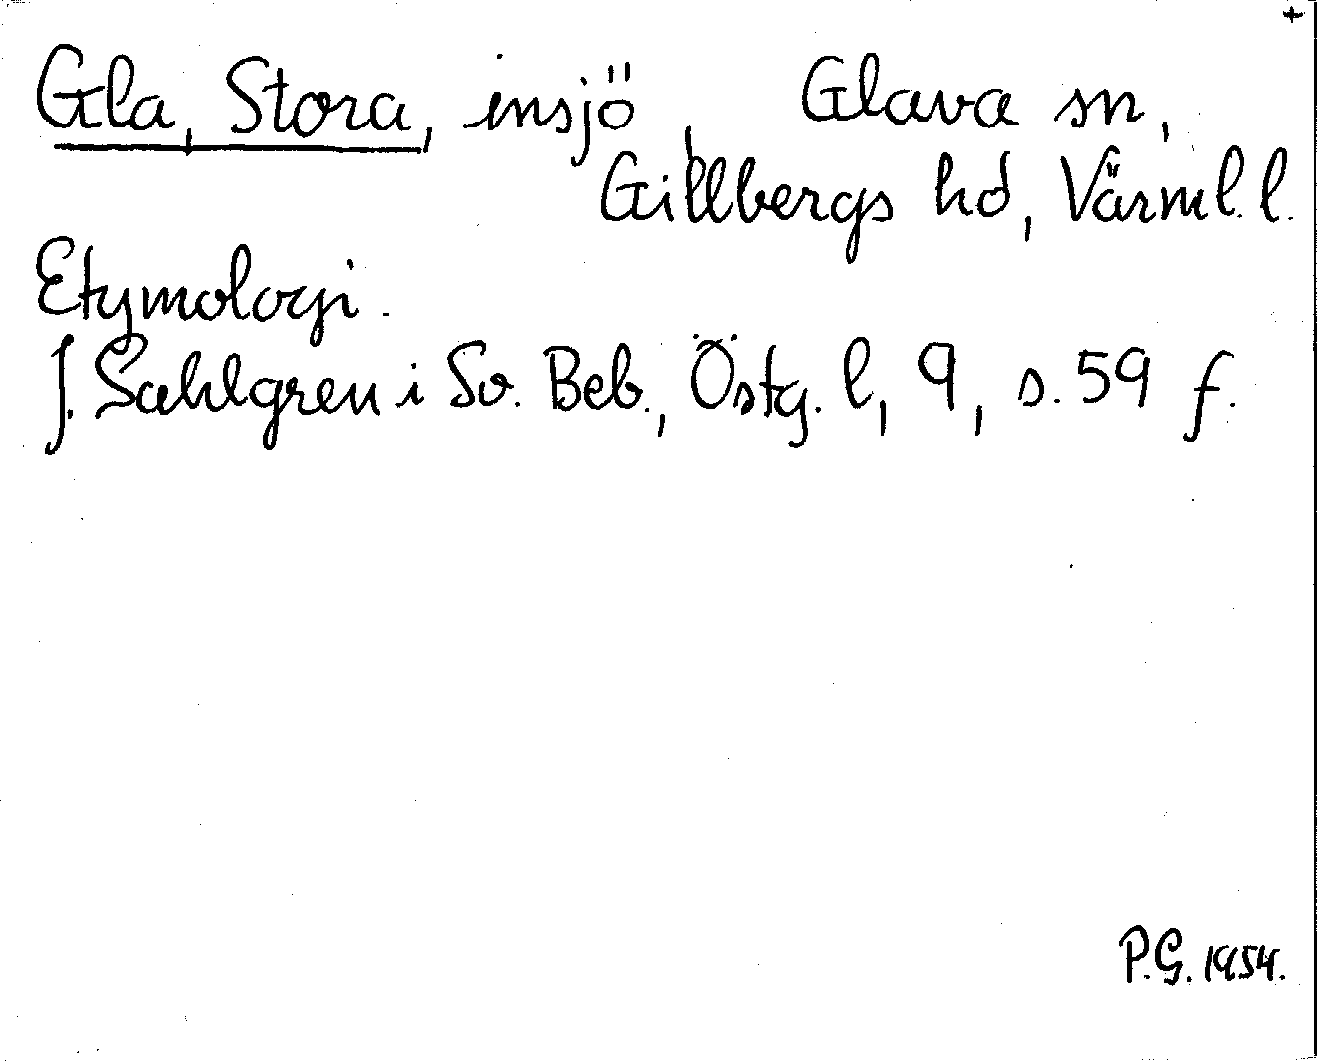 +
Gla, Stora, insjö, Glava sn,
Gillbergs hd, Värml. l.
Etymologi.
J. Sahlgren i Sv. Beb., Östg. l, 9, s. 59 f.
P.G. 1954.